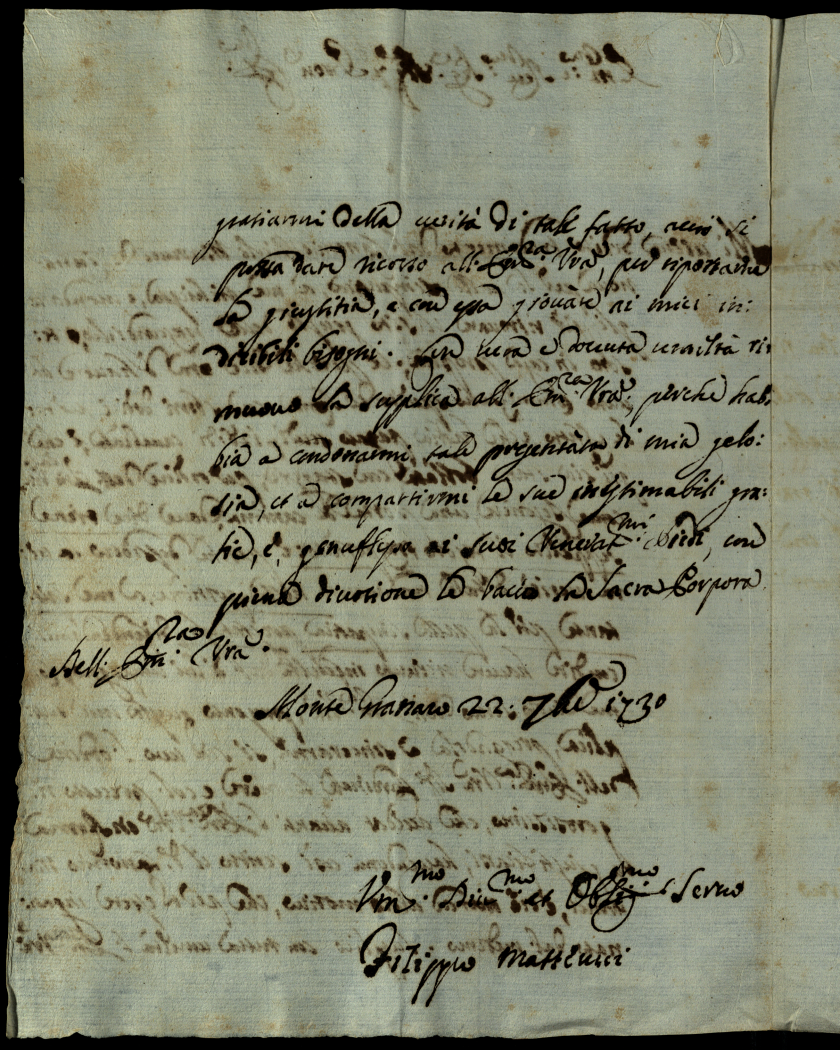 gratiarmi della verità di tale fatto, acciò si
possa dare ricorso all: Em:za Vra, per riportarne
la giustitia, e con essa giovare ai miei in:
dicibili bisogni. con vera e dovuta umiltà ri:
muovo la supplica all: Em:za Vra, perche hab:
bia a condonarmi tale presentata di mia gelo:
sia, et a compartirmi le sue inestimabili gra:
tie, e, genuflesso ai suoi Venerat:mi Piedi, con
piena divotione le bacio la Sacra Porpora
Dell: Em:za Vra.
Monte Granaro 22: 7bre 1730
Um:mo Div:mo et Obl:mo Servo
Filippo Matteucci